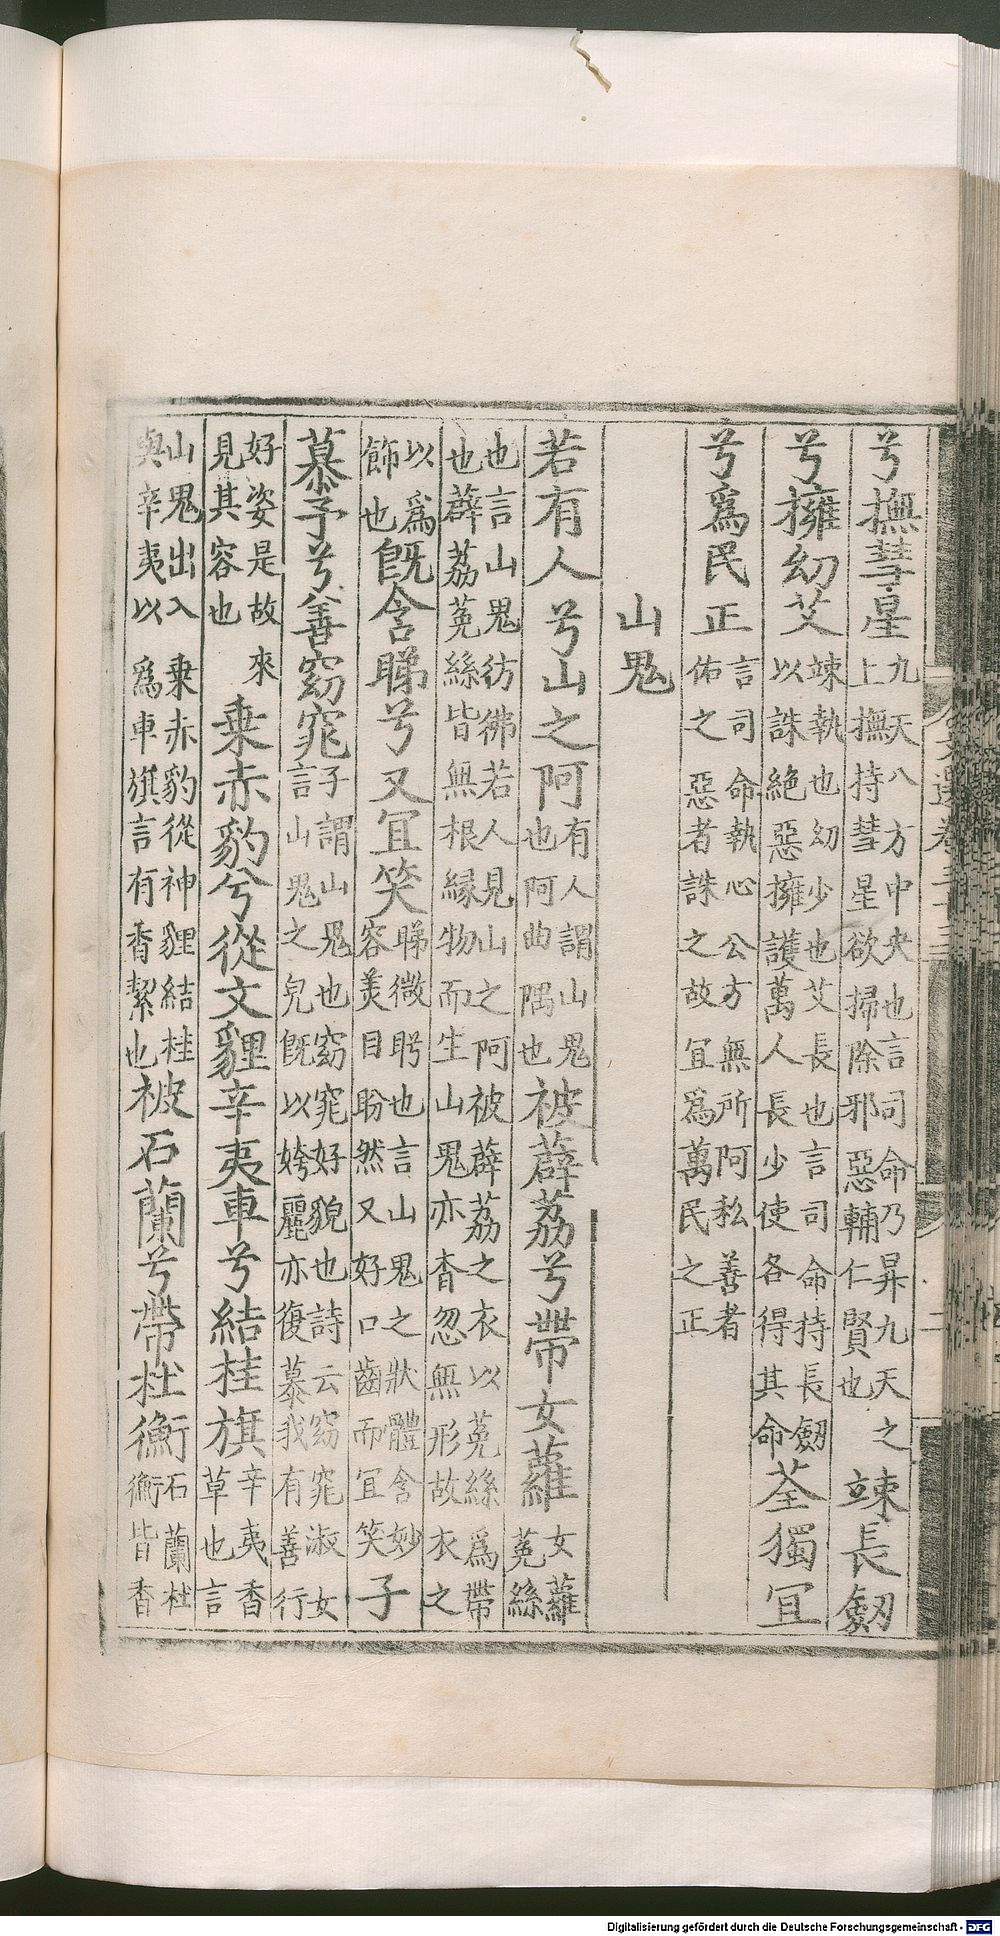 兮撫彗星九天八方中央也言司命乃昇九天之上撫持彗星欲掃除邪惡輔仁賢也竦長劔
兮擁幼艾竦執也幼少也艾長也言司命持長劔以誅絶惡擁護萬人長少使各得其命荃獨宜
兮爲民正言司命執心公方無所阿私善者佑之惡者誅之故宜爲萬民之正
山鬼
若有人兮山之阿有人謂山鬼也阿曲隅也被薜荔兮帶女蘿女蘿莬絲
也言山鬼彷彿若人見山之阿被薜荔之衣以莬絲爲帶也薜荔莬絲皆無根緣物而生山鬼亦杳忽無形故衣之
以爲飾也既含睇兮又宜笑睇微眄也言山鬼之狀體含妙容美目盼然又好口齒而宜笑子
慕予兮善窈窕子謂山鬼也窈窕好貌也詩云窈窕淑女言山鬼之皃既以姱麗亦復慕我有善行
好姿是故來見其容也乗赤豹兮從文貍辛夷車兮結桂旗辛夷香草也言
山鬼出入乗赤豹從神貍結桂與辛夷以爲車旗言有香絜也被石蘭兮帶杜衡石蘭杜衡皆香
Digitalisierung gefördert durch die Deutsche Forschungsgemeinschaft - DFG